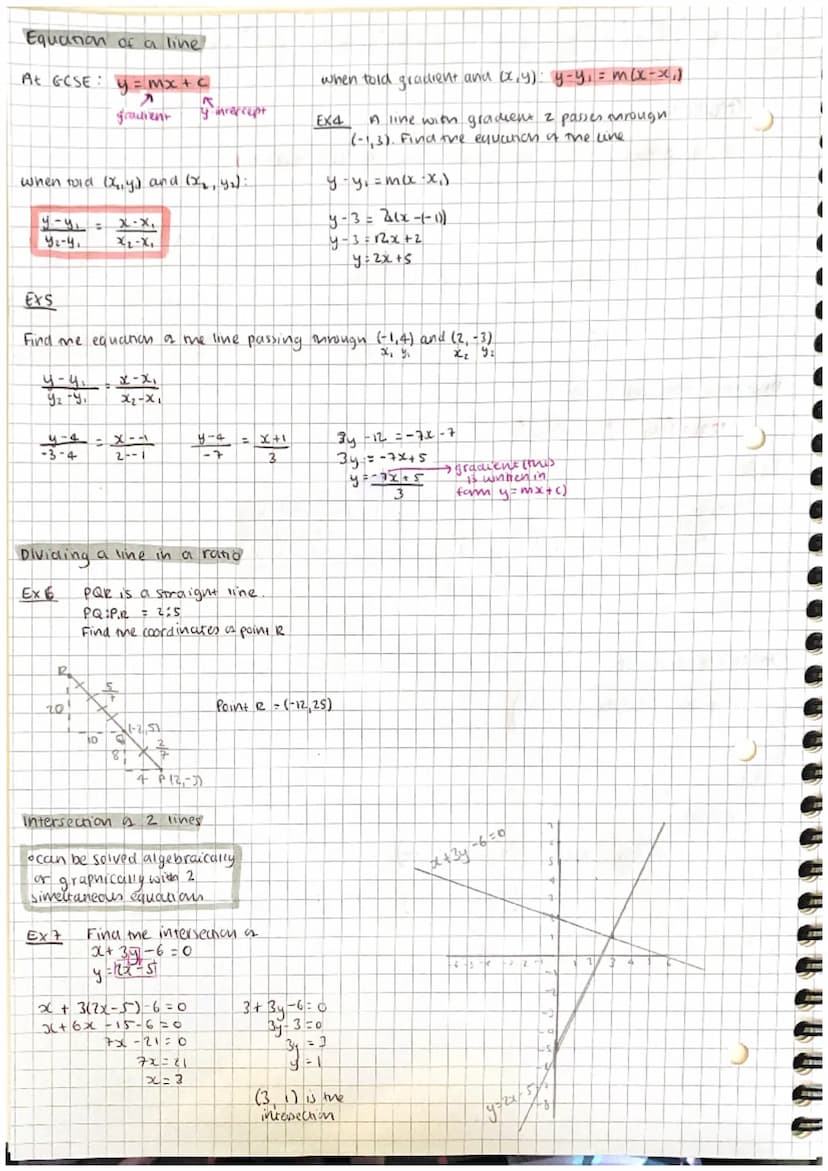 Equation of a line
At GCSE: y = mx + c
gradient y intercept
when told gradient and (x,y): y-y₁ = m(x-x₁)
EX4 A line with gradient 2 passes through
(-1,3). Find the equation of the line
y-y₁ = m(x-x₁)
y-3 = 2(x-(-1))
y-3 = 2x+2
y = 2x+5
when told (x₁,y₁) and (x₂,y₂):
y-y₁ = x-x₁
y₂-y₁ x₂-x₁
EX5
Find the equation of the line passing through (-1,4) and (2,-3)
x₁ y₁ x₂ y₂
y-y₁ = x-x₁
y₂-y₁ x₂-x₁
y-4 = x--1
-3-4 2--1
y-4 = x+1
-7 3
3y-12 = -7x-7
3y = -7x+5
y = -7x+5
3
gradient (this
is written in
form y=mx+c)
Dividing a line in a ratio
Ex6 PQR is a straight line.
PQ:P,R = 2:5
Find the coordinates of point R
R
5
7
20
10 Q (-2,5)
2
7
8
4 P(2,-3)
Point R = (-12,25)
Intersection of 2 lines
can be solved algebraically
or graphically with 2
simeltaneous equations
Ex7 Find the intersection of
x+3y-6=0
y=2x-5
x+3(2x-5)-6=0
x+6x-15-6=0
7x-21=0
7x=21
x=3
3+3y-6=0
3y-3=0
3y=3
y=1
(3,1) is the
intersection
x+3y-6=0
y=2x-5